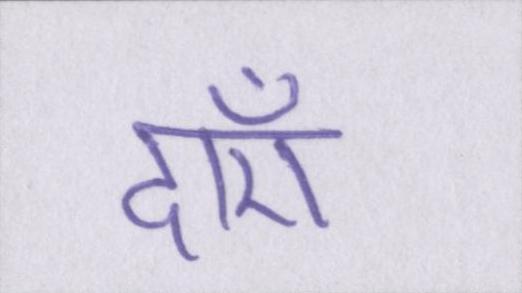 दाएँ